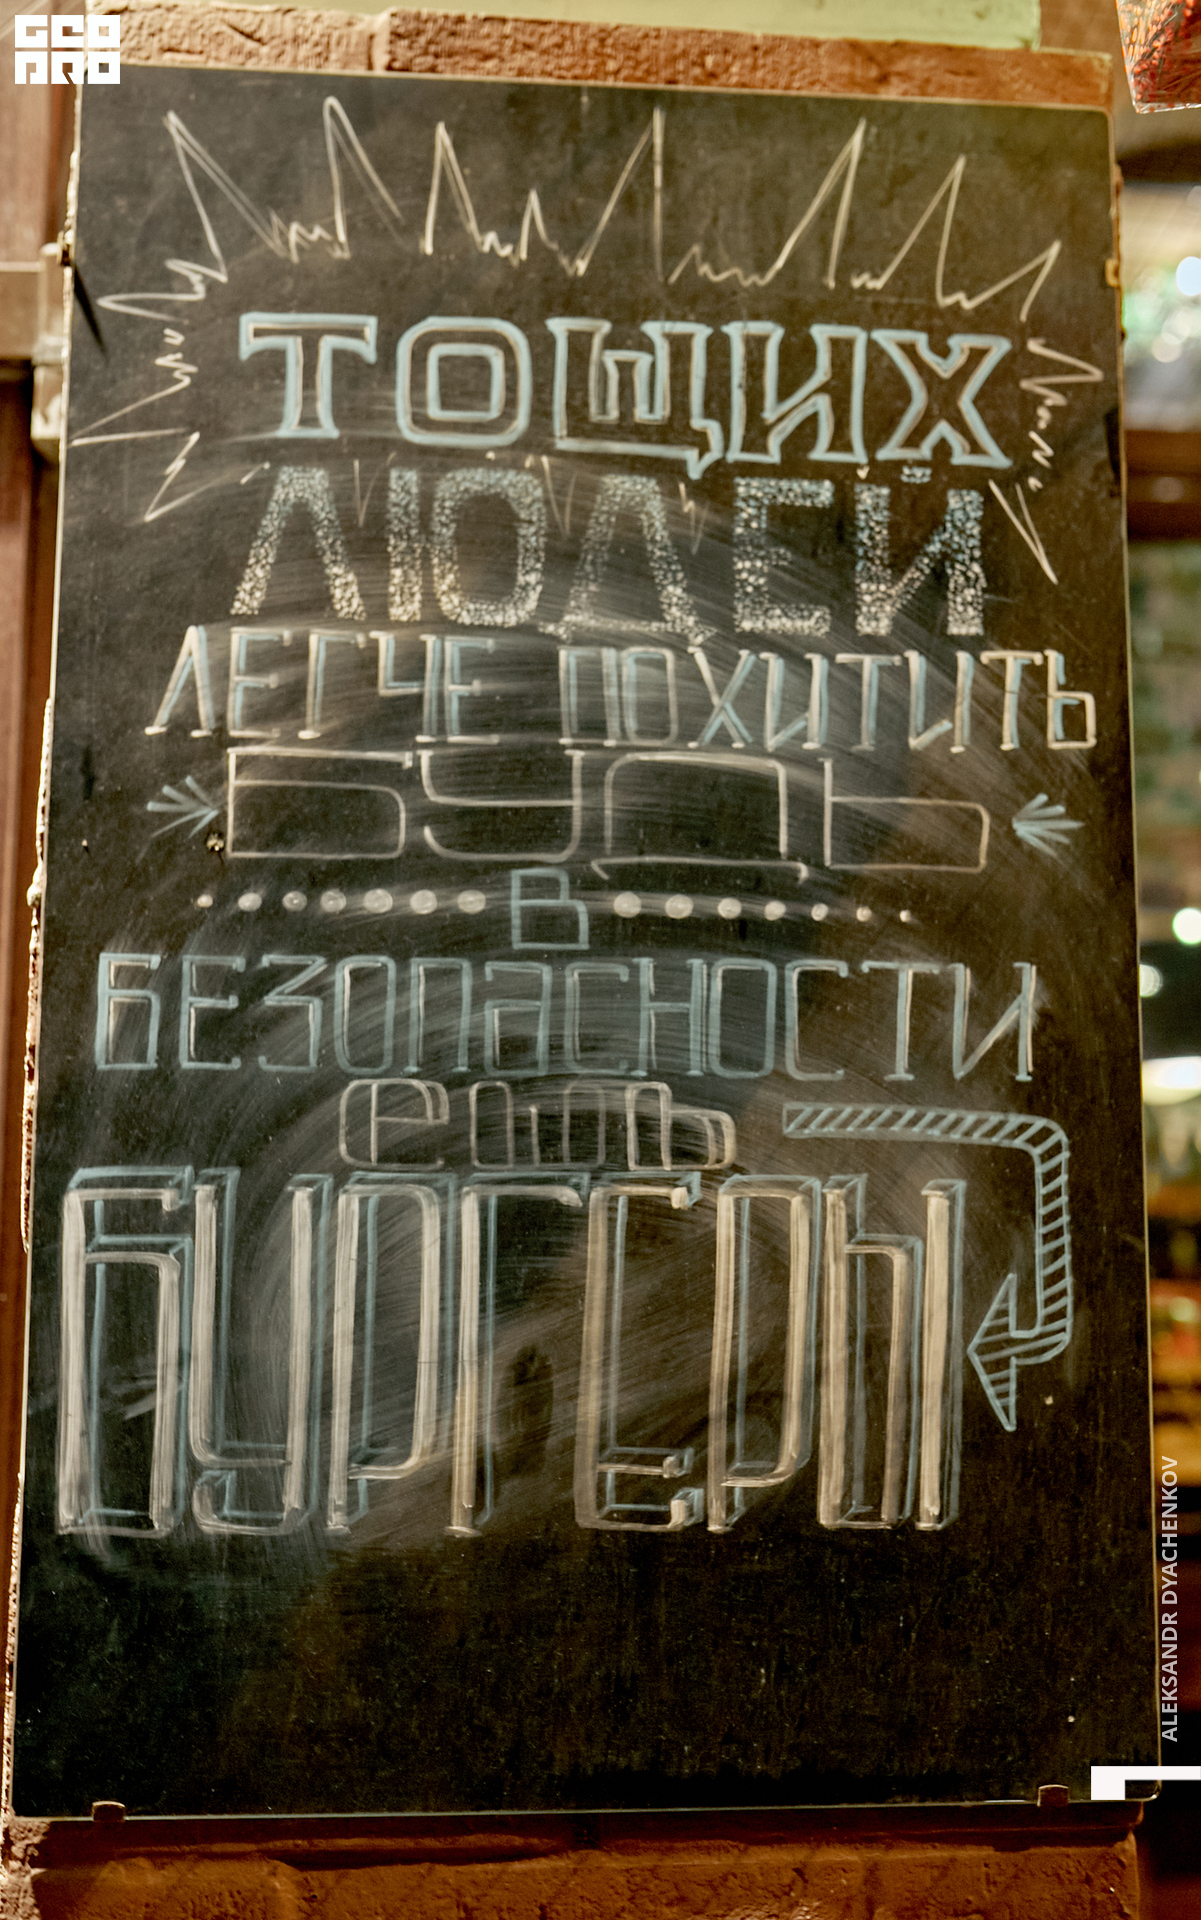 GEO
PRO
ТОЩИХ
ЛЮДЕЙ
ЛЕГЧЕ ПОХИТИТЬ
БУДЬ
В
БЕЗОПАСНОСТИ
ешь
БУРГЕРЫ
ALEKSANDR DYACHENKOV